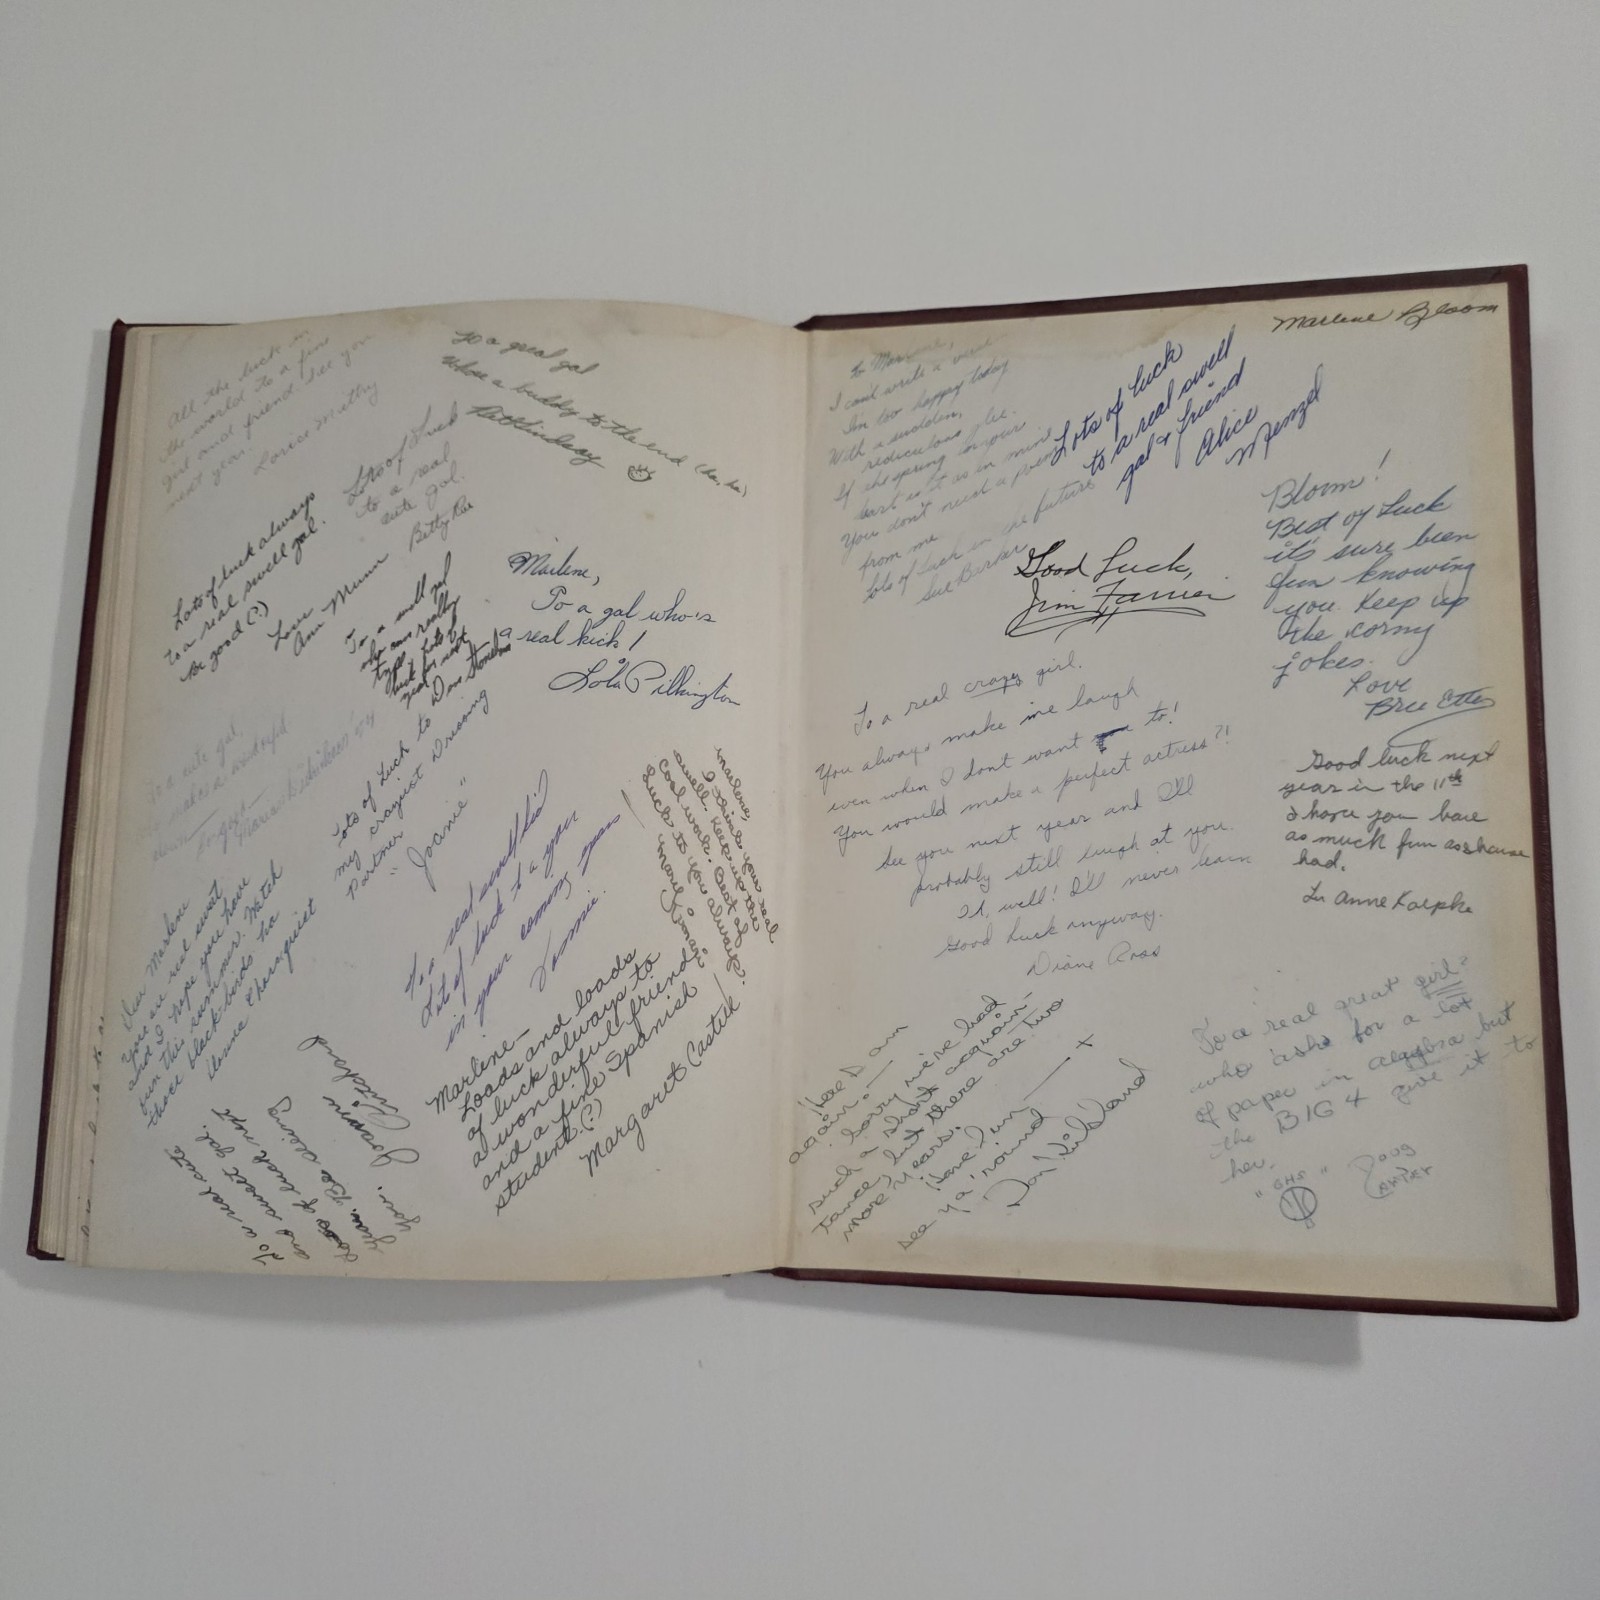 All the luck in
the world to a fine
girl and friend. See you
next year.
To a great gal
Whose a buddy to the end (ha, ha)
Pat Lindsay
Lots of Luck
to a real
cute gal.
Betty Rae
Lots of luck always
to a real swell gal.
Be good (?)
Love
Ann Munn
To a swell gal
who can really
type
luck
year
Marlene,
To a gal who's
a real kick!
Lola Pilkington
To a cute gal,
Lots of Luck to
my craziest Dressing
Partner
"Joanie"
Marlene,
I think your real
swell. Keep up the
cool work. Best of
luck to you always.
To a real swell kid
Lots of luck to a your
in your coming years
Dear Marlene
You are real sweet
and I hope you have
fun this summer. Watch
those black-birds ha
Marlene—
Loads and loads
of luck always to
a wonderful friend
and a fine Spanish
student.(?)
Margarit Castill
To a real cute
and sweet gal.
Lots of luck next
year. Be seeing
you.
Joanne
Marlene Bloom
I can't write a verse
I'm too happy today
With a sudden,
rediculous glee.
If the spring in your
heart isn't as in mine
You don't need a poem
from me
Lots of luck in the future
Sue
Lots of luck
to a real swell
gal & friend
Alice
Menzel
Good Luck,
Jim Farrier
Bloom!
Best of Luck
it's sure been
fun knowing
you. Keep up
the corny
jokes.
Love
To a real crazy girl.
You always make me laugh
even when I dont want to!
You would make a perfect actress?!
See you next year and I'll
probably still laugh at you.
well! I'll never learn
Good luck anyway.
Diane Ross
Good luck next
year in the 11th
I hope you have
as much fun as I have
had.
Lu Anne Koepke
here I am
again—
Sorry we've had
such a short acquain-
tance, but there are two
more years.
Have fun—
see ya 'round
To a real great girl
who asks for a lot
of paper in algebra but
the BIG 4 give it to
her.
"GHS"
Doug